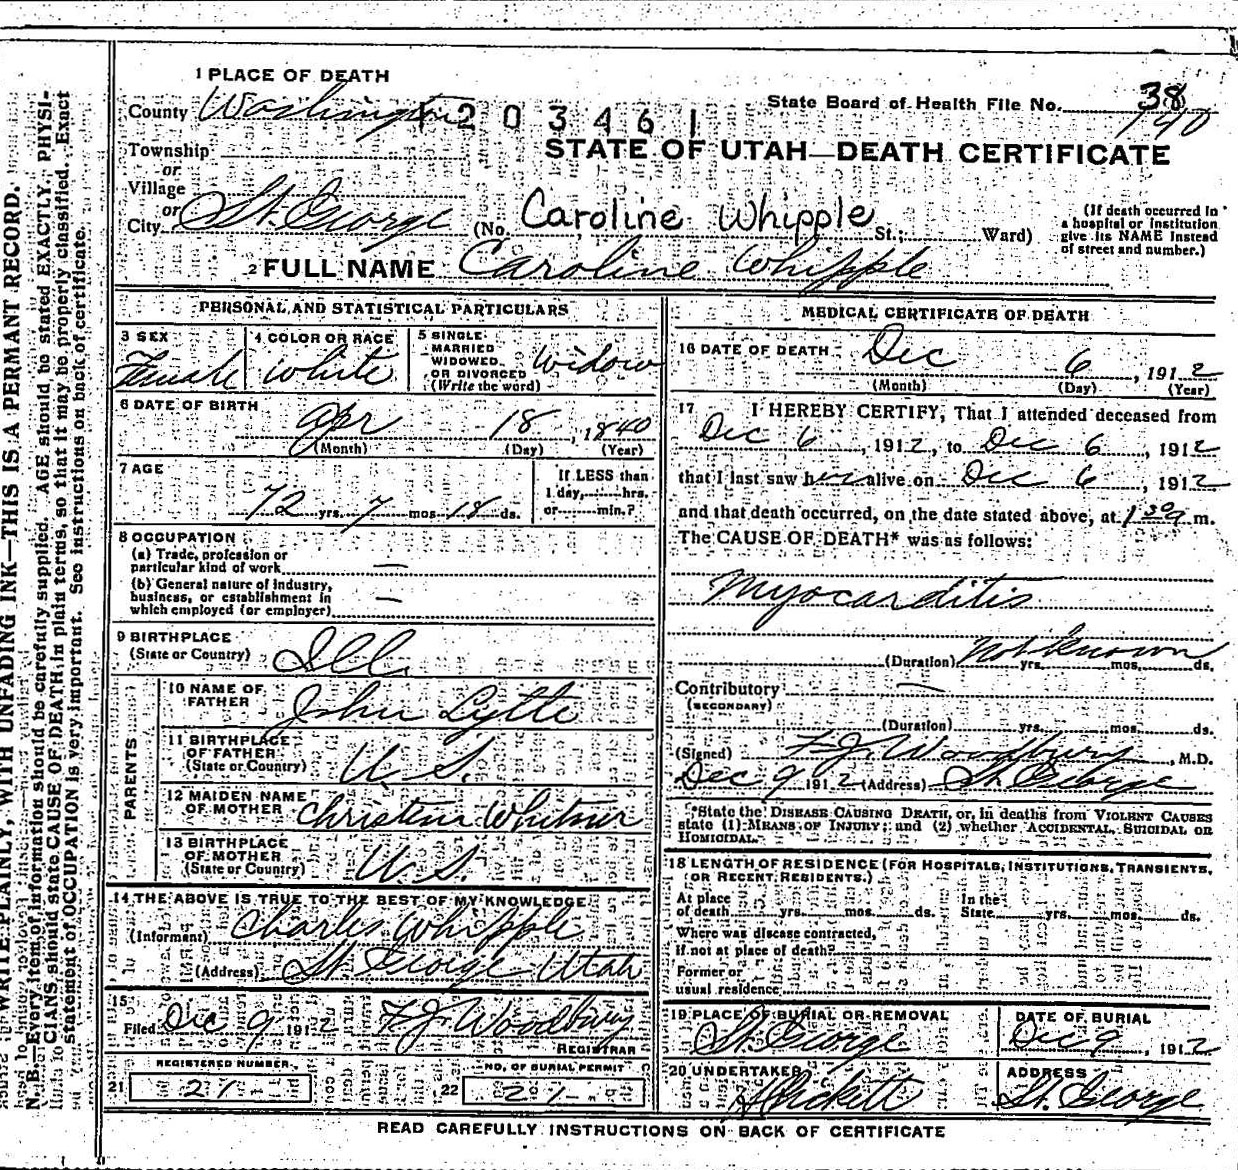 1 PLACE OF DEATH
County Washington
1203461
State Board of Health File No. 38
190
STATE OF UTAH—DEATH CERTIFICATE
Township
or
Village
or
City St. George (No. Caroline Whipple St.; Ward)
(If death occurred in a hospital or institution give its NAME instead of street and number.)
2 FULL NAME Caroline Whipple
PERSONAL AND STATISTICAL PARTICULARS
3 SEX
Female
4 COLOR OR RACE
White
5 SINGLE
MARRIED
WIDOWED
OR DIVORCED
(Write the word)
Widow
6 DATE OF BIRTH
Apr 18, 1840
(Month) (Day) (Year)
7 AGE
72 yrs. 7 mos. 18 ds.
If LESS than
1 day, hrs.
or min.?
8 OCCUPATION
(a) Trade, profession or
particular kind of work —
(b) General nature of industry,
business, or establishment in
which employed (or employer) —
9 BIRTHPLACE
(State or Country) Ill.
PARENTS
10 NAME OF
FATHER John Lytle
11 BIRTHPLACE
OF FATHER
(State or Country) U.S.
12 MAIDEN NAME
OF MOTHER Christena Whitner
13 BIRTHPLACE
OF MOTHER
(State or Country) U.S.
14 THE ABOVE IS TRUE TO THE BEST OF MY KNOWLEDGE
(Informant) Charles Whipple
(Address) St. George Utah
15
Filed Dec 9 1912 F. J. Woodbury
REGISTRAR
REGISTERED NUMBER
21 21
NO. OF BURIAL PERMIT
22 21
MEDICAL CERTIFICATE OF DEATH
16 DATE OF DEATH Dec 6, 1912
(Month) (Day) (Year)
17 I HEREBY CERTIFY, That I attended deceased from
Dec 6, 1912, to Dec 6, 1912
that I last saw her alive on Dec 6, 1912
and that death occurred, on the date stated above, at 1 30 m.
The CAUSE OF DEATH* was as follows:
Myocarditis
(Duration) Not Known yrs. mos. ds.
Contributory —
(SECONDARY)
(Duration) yrs. mos. ds.
(Signed) F. J. Woodbury, M.D.
Dec 9 1912 (Address) St. George
*State the DISEASE CAUSING DEATH, or, in deaths from VIOLENT CAUSES
state (1) MEANS OF INJURY; and (2) whether ACCIDENTAL, SUICIDAL OR
HOMICIDAL.
18 LENGTH OF RESIDENCE (FOR HOSPITALS, INSTITUTIONS, TRANSIENTS,
OR RECENT RESIDENTS.)
At place
of death yrs. mos. ds.
In the
State yrs. mos. ds.
Where was disease contracted,
if not at place of death?
Former or
usual residence
19 PLACE OF BURIAL OR REMOVAL
St. George
DATE OF BURIAL
Dec 9, 1912
20 UNDERTAKER
Pickett
ADDRESS
St. George
READ CAREFULLY INSTRUCTIONS ON BACK OF CERTIFICATE
WRITE PLAINLY, WITH UNFADING INK—THIS IS A PERMANT RECORD.
N. B.—Every item of information should be carefully supplied. AGE should be stated EXACTLY. PHYSI-
CIANS should state CAUSE OF DEATH in plain terms, so that it may be properly classified. Exact
statement of OCCUPATION is very important. See instructions on back of certificate.